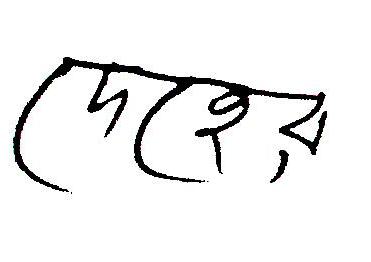 দেহের